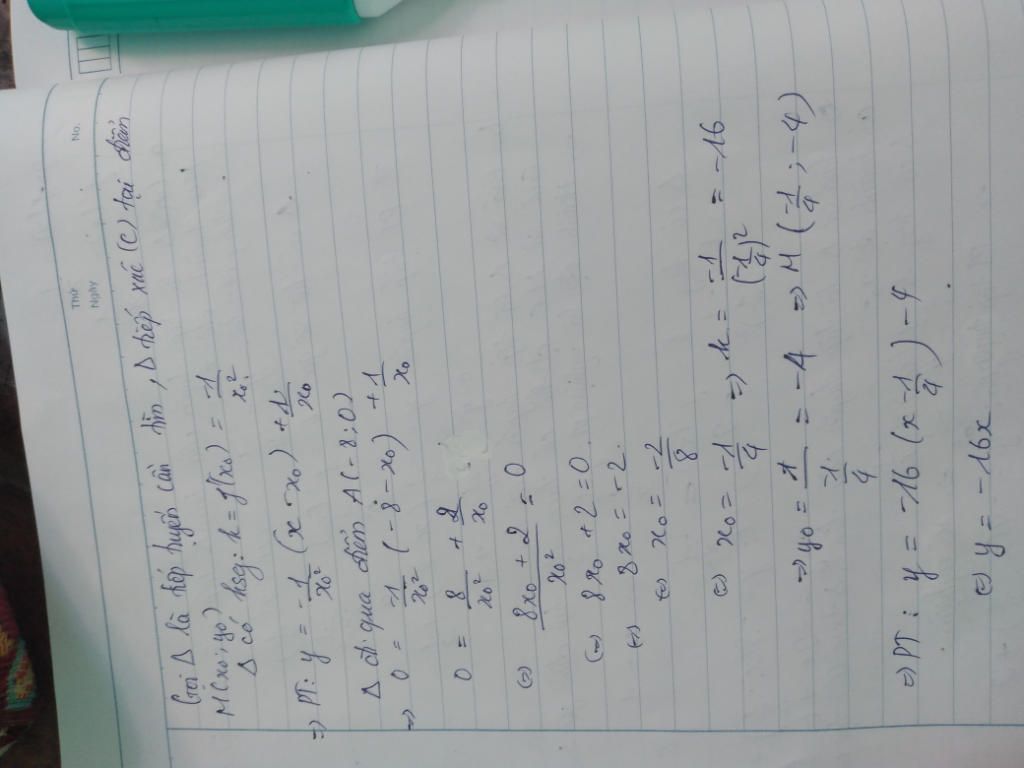 Thứ
Ngày
No.
Gọi Δ là tiếp tuyến cần tìm, Δ tiếp xúc (C) tại điểm
M(x₀; y₀)
Δ có hsg: k = f'(x₀) = -1/x₀²
=> PT: y = -1/x₀² (x - x₀) + 1/x₀
Δ đi qua điểm A(-8; 0)
=> 0 = -1/x₀² (-8 - x₀) + 1/x₀
0 = 8/x₀² + 2/x₀
(=) (8x₀ + 2)/x₀² = 0
(=) 8x₀ + 2 = 0
(=) 8x₀ = -2
(=) x₀ = -2/8
(=) x₀ = -1/4 => k = -1/(-1/4)² = -16
=> y₀ = 1/(-1/4) = -4 => M (-1/4; -4)
=> PT: y = -16 (x - 1/4) - 4
(=) y = -16x